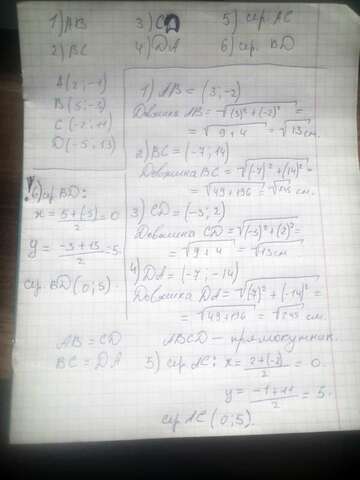 1) AB 3) CD 5) сер. AC
2) BC 4) DA 6) сер. BD
A(2;-1)
B(5;-3)
C(-2;11)
D(-5;13)
1) AB = (3;-2)
Довжина AB = √(3)²+(-2)² =
= √9+4 = √13 см.
2) BC = (-7;14)
Довжина BC = √(-7)²+(14)² =
= √49+196 = √245 см.
3) CD = (-3;2)
Довжина CD = √(-3)²+(2)² =
= √9+4 = √13 см
4) DA = (7;-14)
Довжина DA = √(7)²+(-14)² =
= √49+196 = √245 см.
6) сер BD:
x = 5+(-5)/2 = 0
y = -3+13/2 = 5
сер. BD (0;5).
AB = CD
BC = DA
ABCD – прямокутник.
5) сер. AC: x = 2+(-2)/2 = 0.
y = -1+11/2 = 5.
сер AC (0;5).